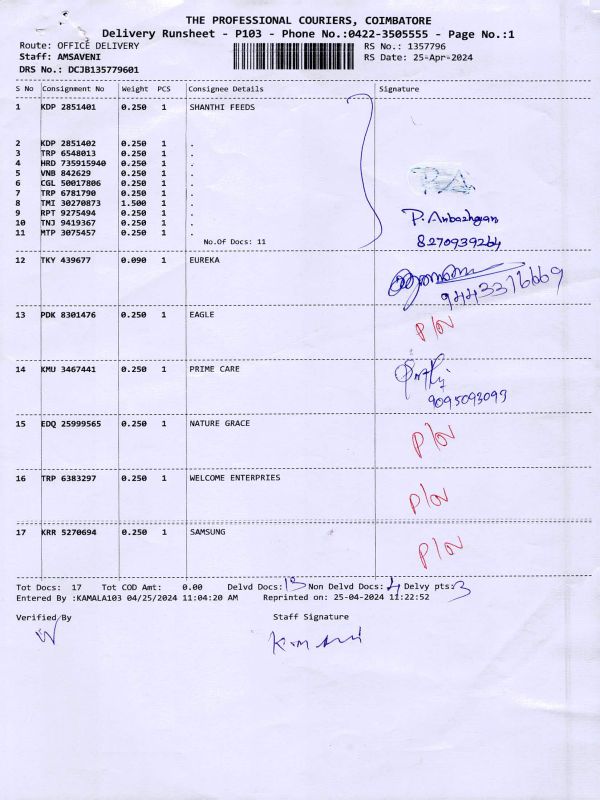 THE PROFESSIONAL COURIERS, COIMBATORE
Delivery Runsheet - P103 - Phone No.:0422-3505555 - Page No.:1
Route: OFFICE DELIVERY RS No.: 1357796
Staff: AMSAVENI RS Date: 25-Apr-2024
DRS No.: DCJB135779601
S No Consignment No Weight PCS Consignee Details Signature
1 KDP 2851401 0.250 1 SHANTHI FEEDS
2 KDP 2851402 0.250 1 .
3 TRP 6548013 0.250 1 .
4 HRD 735915940 0.250 1 .
5 VNB 842629 0.250 1 .
6 CGL 50017806 0.250 1 .
7 TRP 6781790 0.250 1 .
8 TMI 30270873 1.500 1 .
9 RPT 9275494 0.250 1 .
10 TNJ 9419367 0.250 1 .
11 MTP 3075457 0.250 1 .
P.A
P. Anbazhgan
8270939264
No.Of Docs: 11
12 TKY 439677 0.090 1 EUREKA
9443376669
13 PDK 8301476 0.250 1 EAGLE
P/ov
14 KMU 3467441 0.250 1 PRIME CARE
9095093099
15 EDQ 25999565 0.250 1 NATURE GRACE
P/ov
16 TRP 6383297 0.250 1 WELCOME ENTERPRIES
P/ov
17 KRR 5270694 0.250 1 SAMSUNG
P/ov
Tot Docs: 17 Tot COD Amt: 0.00 Delvd Docs: 13 Non Delvd Docs: 4 Delvy pts: 3
Entered By :KAMALA103 04/25/2024 11:04:20 AM Reprinted on: 25-04-2024 11:22:52
Verified By Staff Signature